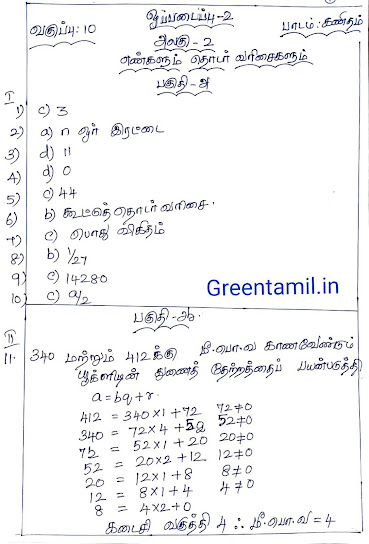 வகுப்பு: 10
ஒப்படைப்பு-2
பாடம்: கணிதம்
அலகு-2
எண்களும் தொடர் வரிசைகளும்
பகுதி-அ
I
1) c) 3
2) a) n ஓர் இரட்டை
3) d) 11
4) d) 0
5) c) 44
6) b) கூட்டுத் தொடர் வரிசை.
7) c) பொது விகிதம்
8) b) 1/27
9) c) 14280
10) c) a/2
Greentamil.in
பகுதி-ஆ.
II
11. 340 மற்றும் 412க்கு மீ.பொ.வ காணவேண்டும்
யூக்ளிடின் துணைத் தேற்றத்தைப் பயன்படுத்தி
a = bq + r.
412 = 340×1+72 72≠0
340 = 72×4+52 52≠0
72 = 52×1+20 20≠0
52 = 20×2+12 12≠0
20 = 12×1+8 8≠0
12 = 8×1+4 4≠0
8 = 4×2+0
கடைசி வகுத்தி 4 ∴ மீ.பொ.வ = 4